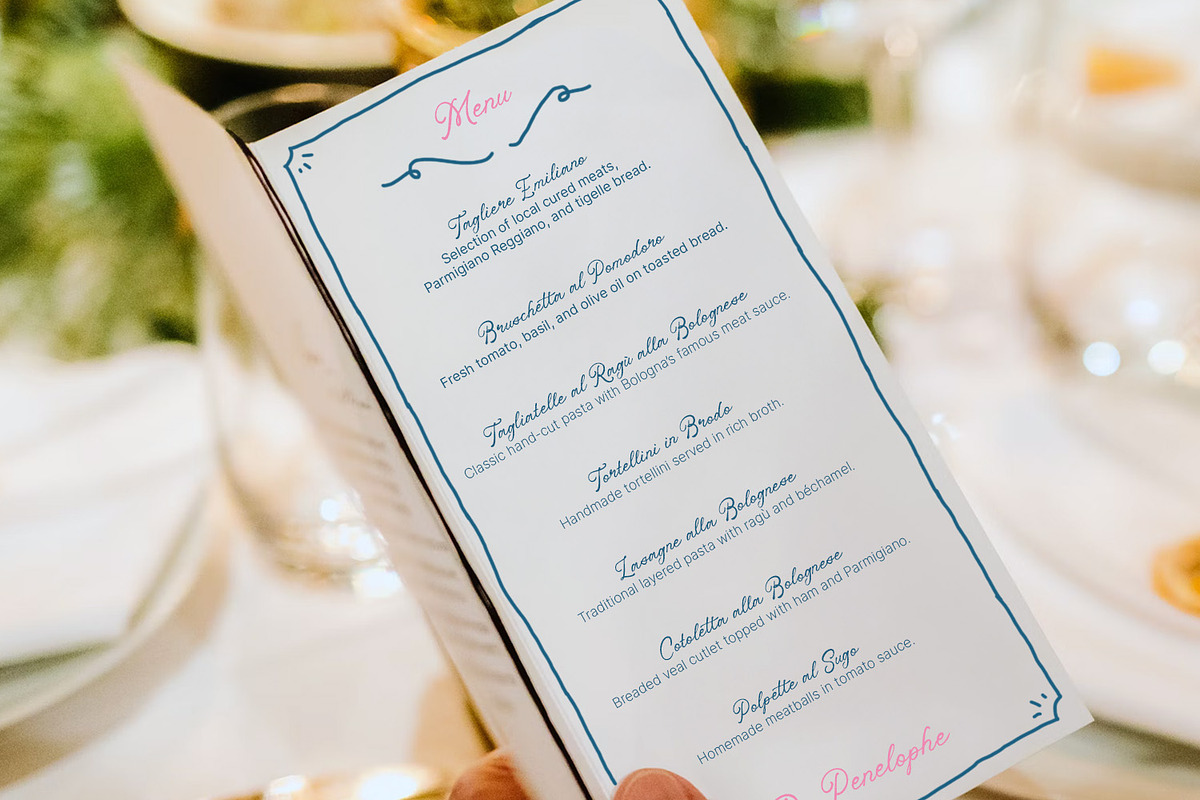 Menu
Tagliere Emiliano
Selection of local cured meats,
Parmigiano Reggiano, and tigelle bread.
Bruschetta al Pomodoro
Fresh tomato, basil, and olive oil on toasted bread.
Tagliatelle al Ragù alla Bolognese
Classic hand-cut pasta with Bologna's famous meat sauce.
Tortellini in Brodo
Handmade tortellini served in rich broth.
Lasagne alla Bolognese
Traditional layered pasta with ragù and béchamel.
Cotoletta alla Bolognese
Breaded veal cutlet topped with ham and Parmigiano.
Polpette al Sugo
Homemade meatballs in tomato sauce.
Penelophe